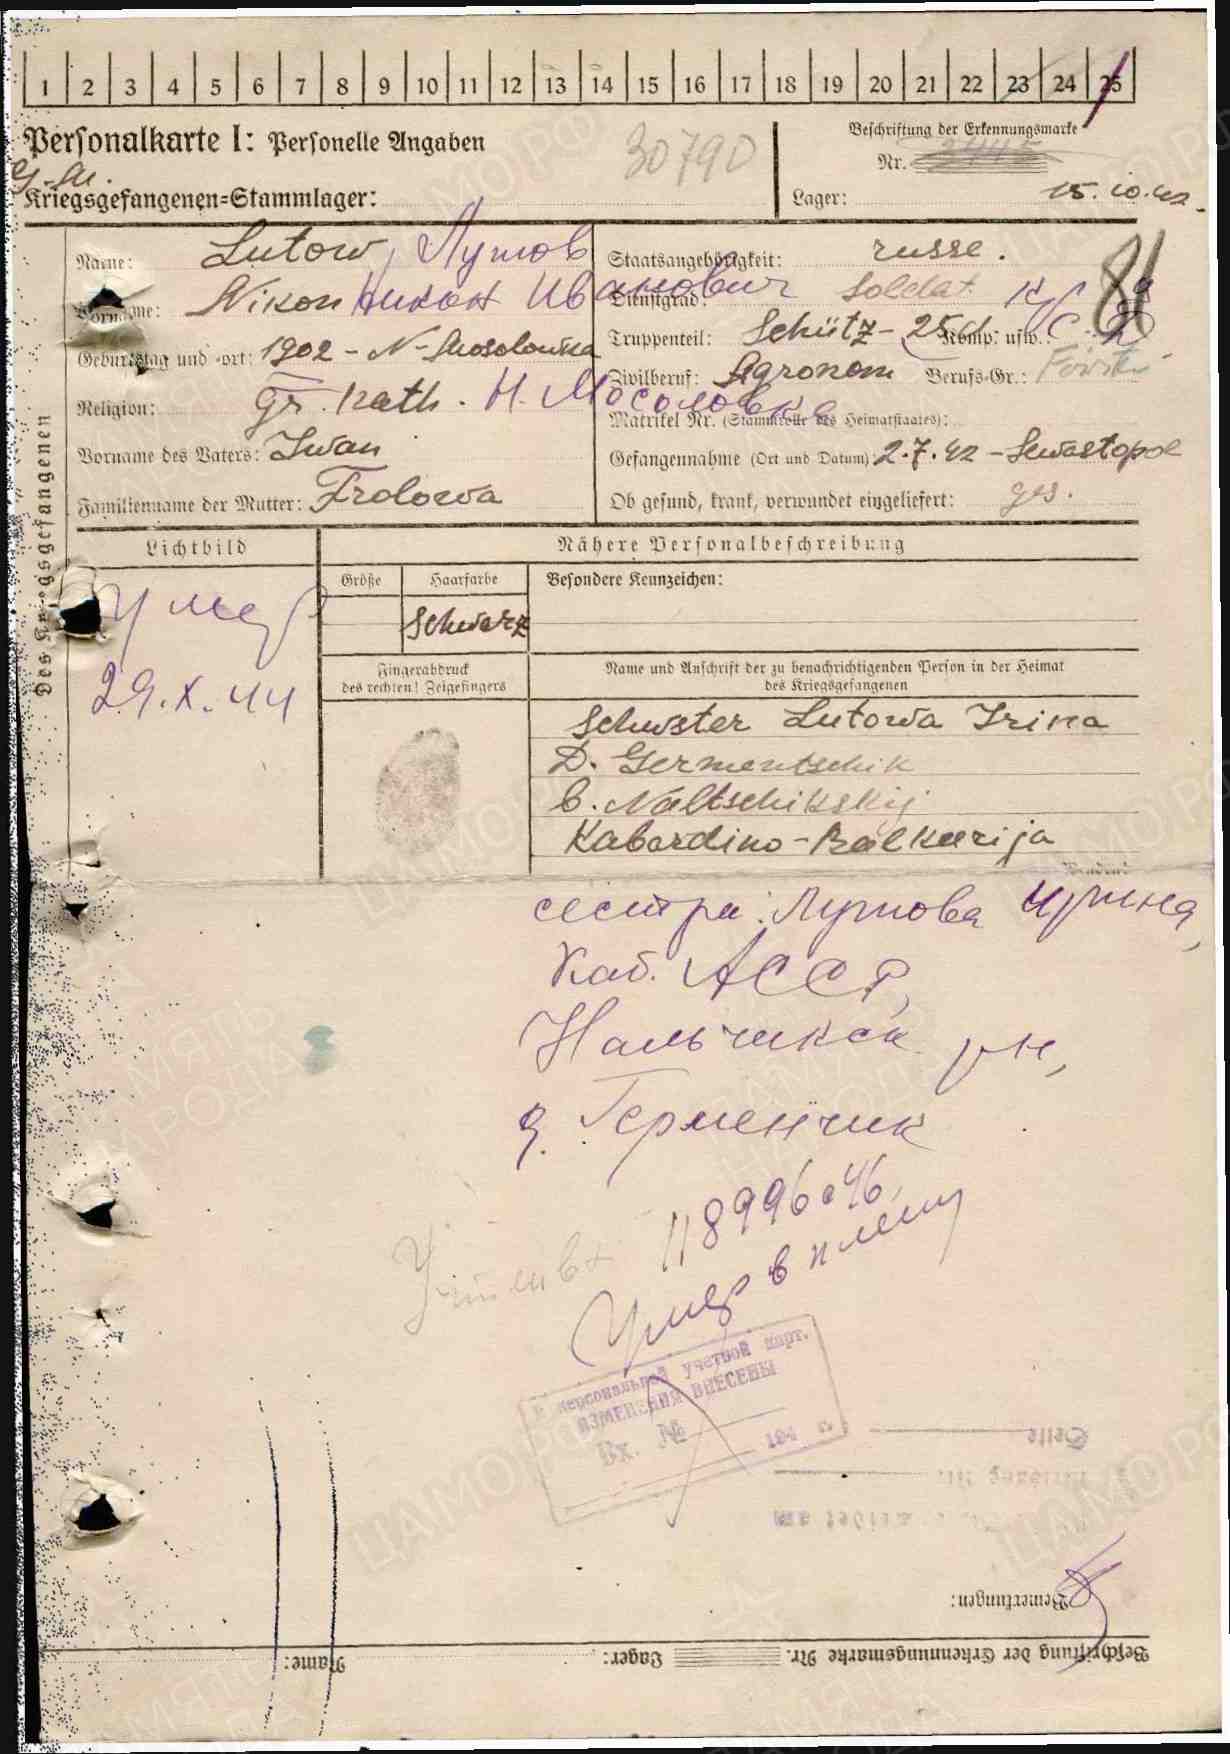 1 2 3 4 5 6 7 8 9 10 11 12 13 14 15 16 17 18 19 20 21 22 23 24 25
Personalkarte I: Personelle Angaben
30790
Beschriftung der Erkennungsmarke
Nr.
Kriegsgefangenen=Stammlager:
Lager:
15.10.42.
Des Kriegsgefangenen
Name: Lutow, Лутов
Staatsangehörigkeit: russe.
Vorname: Nikon Никон Иванович
Dienstgrad: Soldat кр
Truppenteil: Schütz- Komp. usw.:
Geburtstag und -ort: 1902 - N-Mosolowka
Zivilberuf: Agronom Berufs-Gr.:
Religion: Gr. Kath. Н. Мосоловка
Matrikel Nr. (Stammrolle des Heimatstaates):
Vorname des Vaters: Iwan
Gefangennahme (Ort und Datum): 2.7.42 - Sewastopol
Familienname der Mutter: Frolowa
Ob gesund, krank, verwundet eingeliefert: ges.
Lichtbild
Nähere Personalbeschreibung
Größe Haarfarbe Besondere Kennzeichen:
Schwarz
умер
29.X.44
Fingerabdruck
des rechten! Zeigefingers
Name und Anschrift der zu benachrichtigenden Person in der Heimat
des Kriegsgefangenen
Schwster Lutowa Irina
D. Germentschik
b. Naltschikskij
Kabardino-Balkarija
сестра: Лутова Ирина,
Каб. АССР,
Нальчикск рн,
д. Герменчик
118996с46,
Умер в плену
В персональной учетной карт.
ИЗМЕНЕНИЯ ВНЕСЕНЫ
Вх. №
194 г.
Seite
Bemerkungen:
Name: Lager: Beschriftung der Erkennungsmarke Nr.